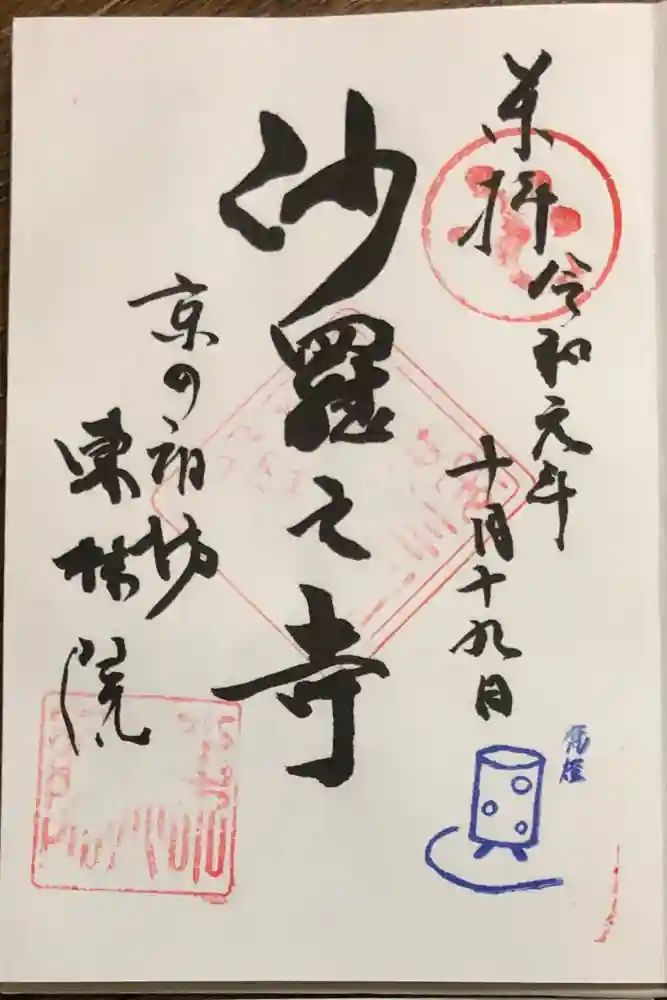 奉拝
令和元年
十月十九日
沙羅之寺
京の宿坊
東林院